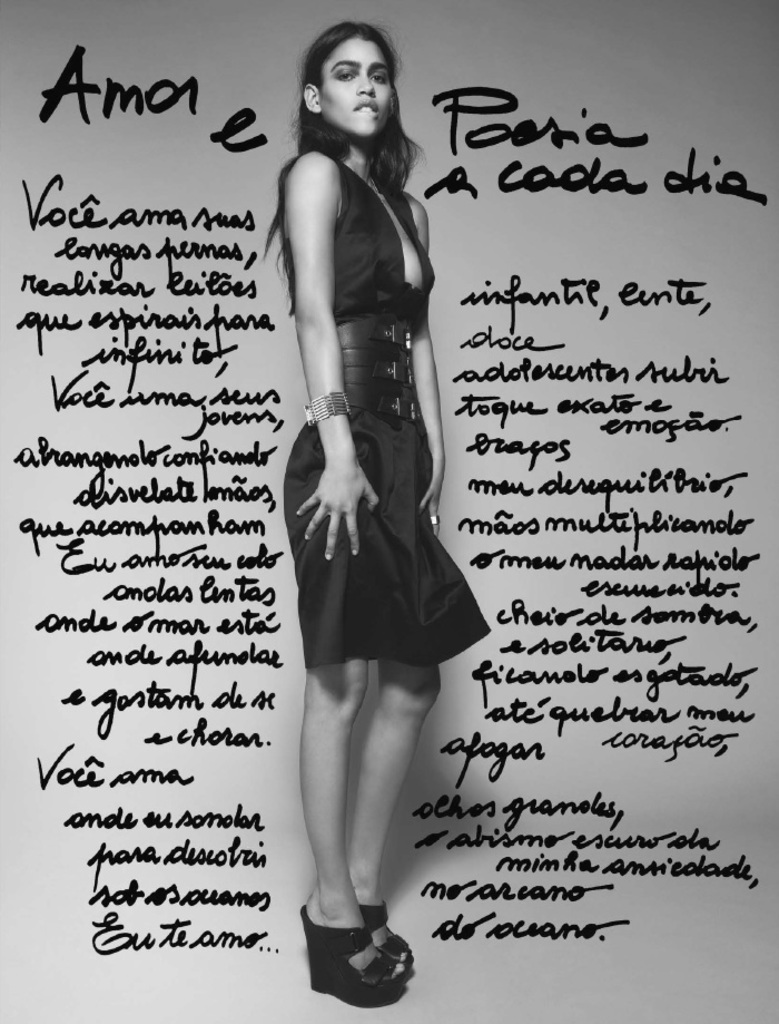 Amor e Poesia
a cada dia
Você ama suas
longas pernas,
realizar leilões
que espirais para
infinito,
Você uma seus
jovens,
abrangendo confiando
disvelate mãos,
que acompanham
Eu amo seu colo
andas lentas
onde o mar está
onde afundar
e gostam de se
e chorar.
Você ama
onde eu sondar
para descobrir
sob os oceanos
Eu te amo...
infantil, lente,
doce
adolescentes subir
toque exato e
emoção.
braços
meu desequilíbrio,
mãos multiplicando
o meu nadar rapido
escurecido.
cheio de sombra,
e solitario,
ficando esgotado,
até quebrar meu
coração,
afogar
olhos grandes,
o abismo escuro da
minha ansiedade,
no arcano
do oceano.